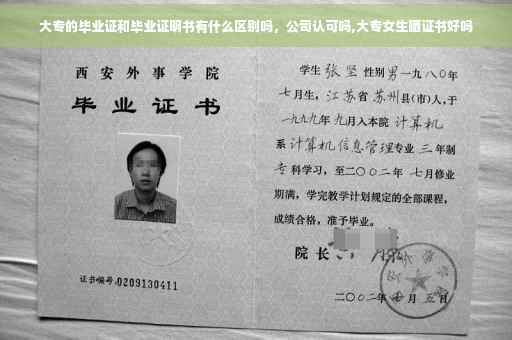 大专的毕业证和毕业证明书有什么区别吗，公司认可吗,大专女生晒证书好吗
西安外事学院
毕业证书
证书编号:0209130411
学生 张坚 性别男 一九八〇年
七月生，江苏省 苏州县(市)人,于
一九九九年 九月入本院 计算机
系 计算机信息管理专业 三 年制
专科学习，至二〇〇二年 七月修业
期满，学完教学计划规定的全部课程，
成绩合格，准予毕业。
院长
二〇〇二年 月 五日